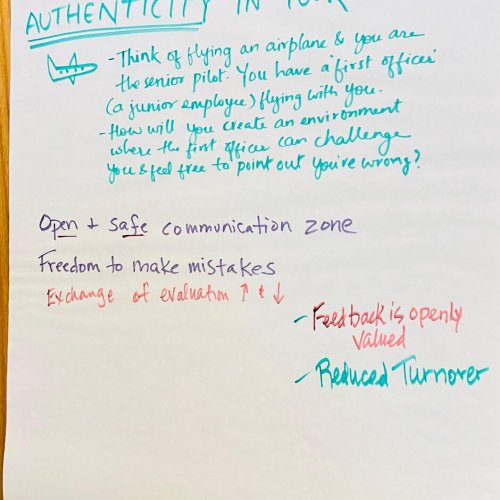 AUTHENTICITY IN YOUR
- Think of flying an airplane & you are
the senior pilot. You have a 'first officer'
(a junior employee) flying with you.
- How will you create an environment
where the first officer can challenge
you & feel free to point out you're wrong?
Open + safe communication zone
Freedom to make mistakes
Exchange of evaluation ↑ & ↓
- Feedback is openly
valued
- Reduced Turnover